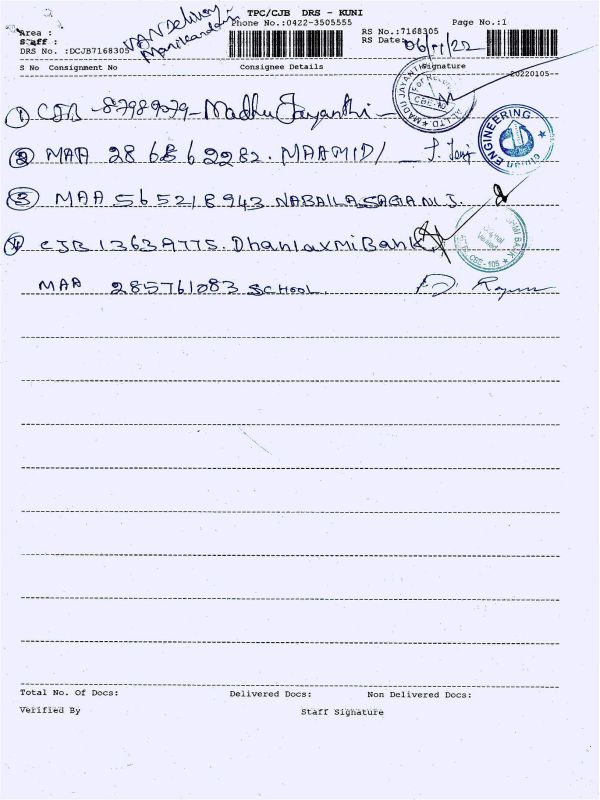 TPC/CJB DRS - KUNI
Phone No.:0422-3505555
Page No.:1
VAN Delivery
Manikandan
Area :
Staff :
DRS No. :DCJB7168305
RS No.:7168305
RS Date: 06/11/22
S No Consignment No Consignee Details Signature
20220105
1 CJB - 87989079 - Madhu Jayanthi -
2 MAA 286862282. MAAMIDI
3 MAA 565218943 NABAILA SAGIANI J.
4 CJB 13639775. Dhanlaxmi Bank
MAA 285761083 SCHOOL.
MADU JAYANTHI
CBE
ENGINEERING
BANK
CBE - 105
Total No. Of Docs: Delivered Docs: Non Delivered Docs:
Verified By Staff Signature